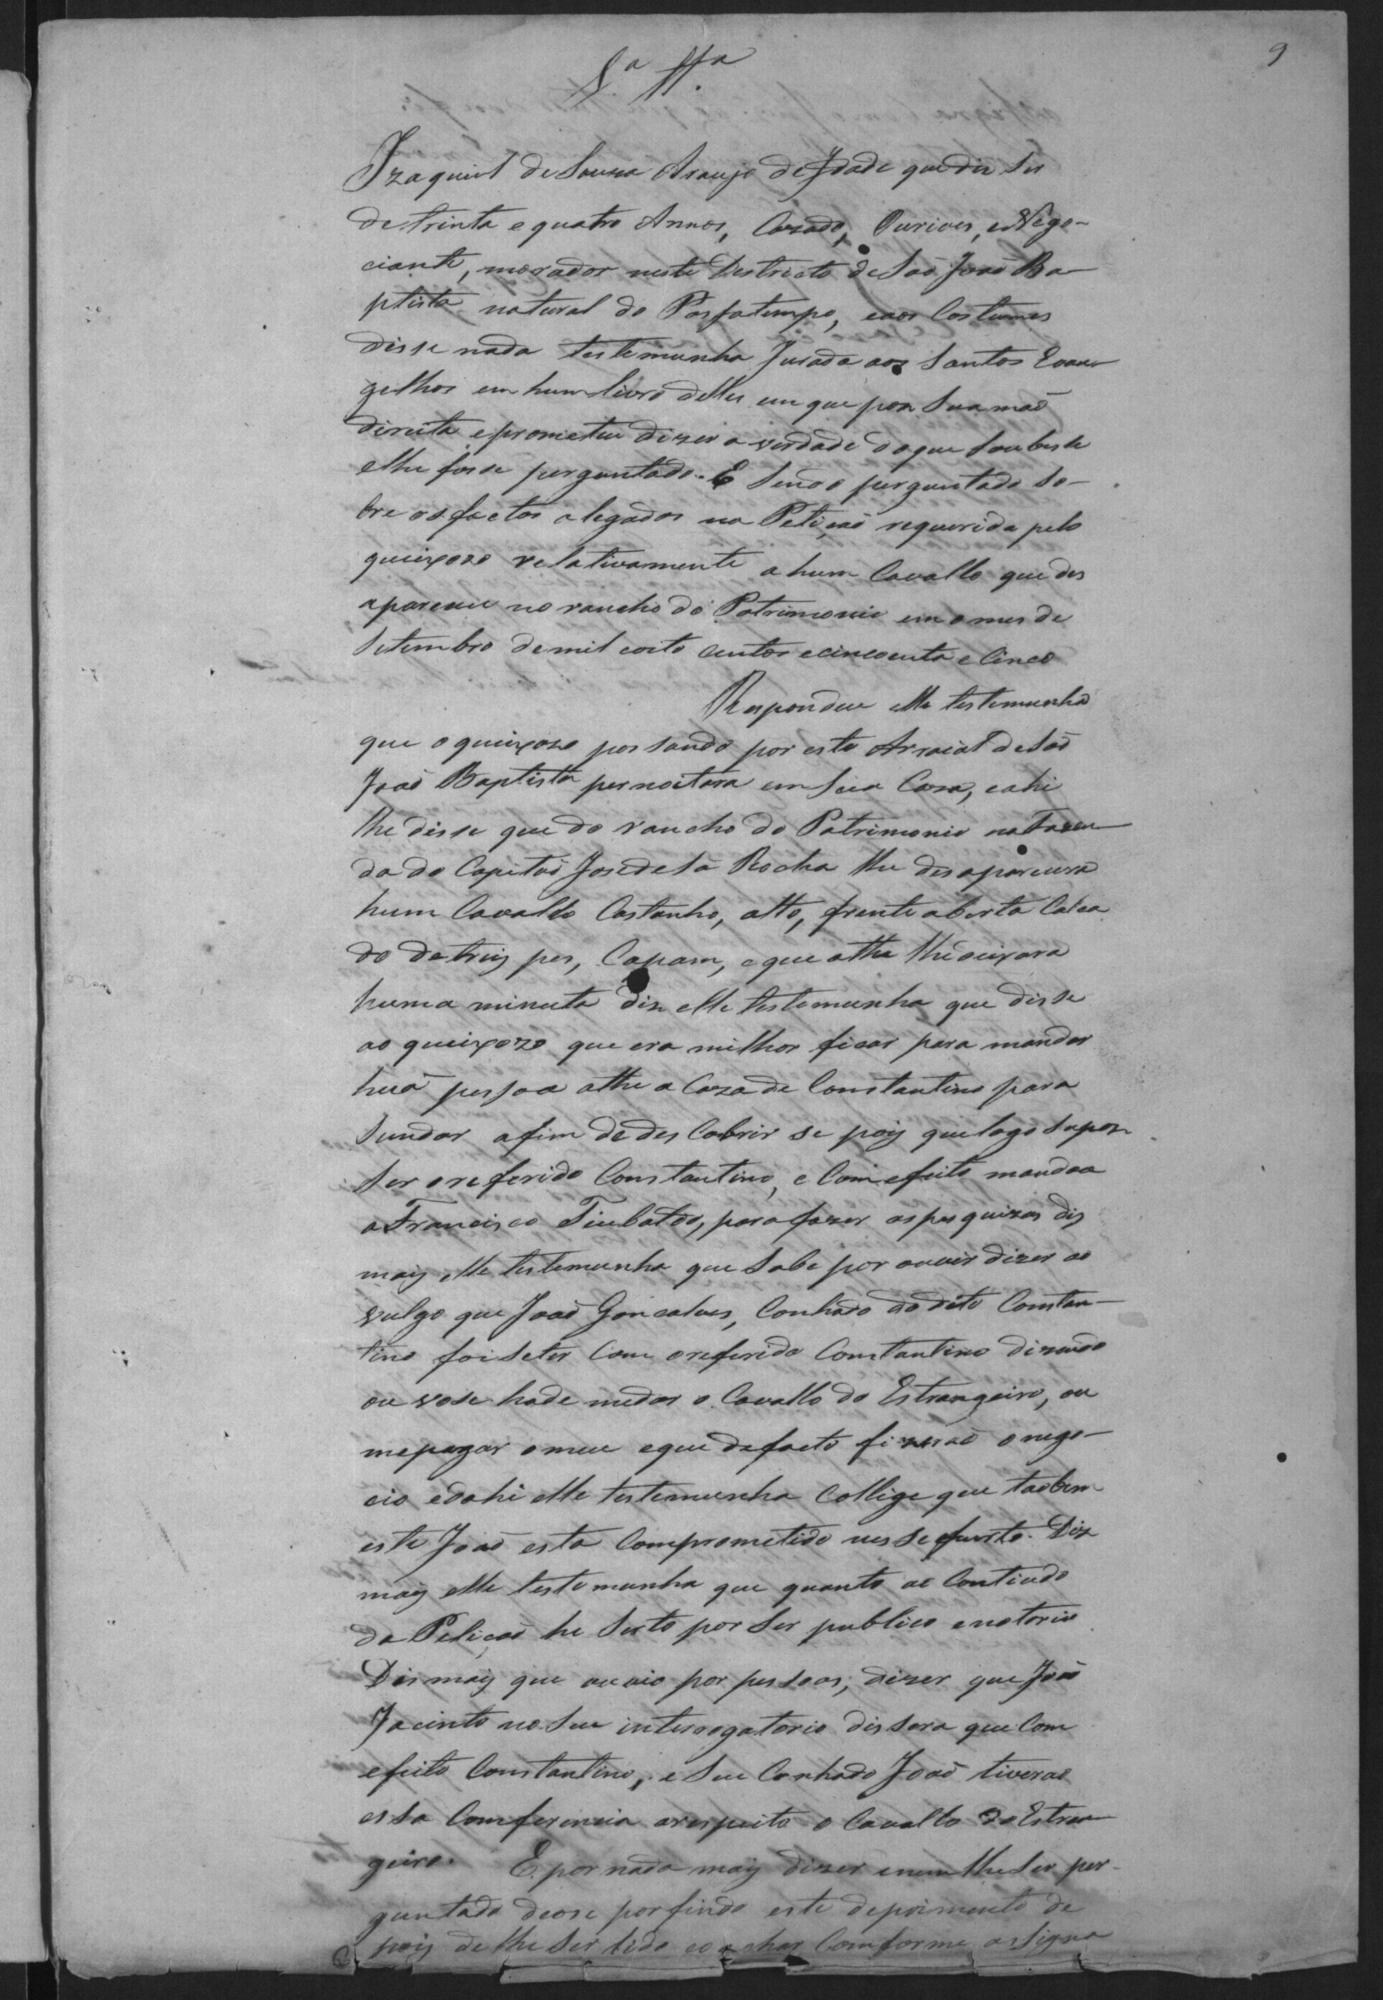 9
Izaquiel de Souza Araujo de Idade que diz ser
de trinta e quatro Annos, Cazado, Ourives, e Nego-
ciante, morador neste Destricto de Saõ Joaõ Ba-
ptista natural do Passatempo, e aos Costumes
disse nada testemunha Jurada aos Santos Evan-
gelhos em hum livro delles em que pos Sua maõ
direita, e prometeu dizer a verdade do que Soubesse
e lhe fosse perguntado. E Sendo perguntado So-
bre os factos alegados na Petiçaõ requerida pelo
queixozo relativamente a hum Cavallo que des
apareceu no rancho do Patrimonio em o mes de
Setembro de mil eoito centos e cincoenta e Cinco
Respondeu elle testemunha
que o queixozo passando por este Arraial de Saõ
Joaõ Baptista pernoitara em Sua Caza, e ahi
lhe disse que do rancho do Patrimonio na Fazen
da do Capitaõ José de Sá Rocha lhe desaparecera
hum Cavallo Castanho, alto, frente aberta Calça
do de treiz pes, Capam, e que athe lhe deixara
huma minuta diz elle testemunha que disse
ao queixozo que era milhor ficar para mandar
huã pessoa athe a Caza de Constantino para
Sundar afim de des Cobrir se pois que logo Supoz
Ser o referido Constantino, e Com efeito mandou
a Francisco Tiubaldo, para fazer as pesquizas diz
mais elle testemunha que Sabe por ouvir dizer ao
vulgo que Joaõ Goncalves, Conhado do dito Constan-
tino foi se ter Com o referido Constantino dizendo
ou vose hade me dar o Cavallo do Estrangeiro, ou
me pagar o meu e que de facto fizeraõ o nego-
cio e dahi elle testemunha Collige que taobem
este Joaõ esta Comprometido nesse furto. Diz
mais elle testemunha que quanto ao Contiudo
da Petiçaõ he Serto por Ser publico e notorio
Dis mais que ouvio por pessoas, dizer que Joaõ
Jacinto no Seu interrogatorio dissera que Com
efeito Constantino, e Seu Conhado Joaõ tiveraõ
essa Comferencia a respeito o Cavallo do Estran
geiro. E por nada mais dizer e nem lhe Ser per-
guntado deose por findo este depoimento de
pois de lhe Ser lido e o achar Comforme assigna